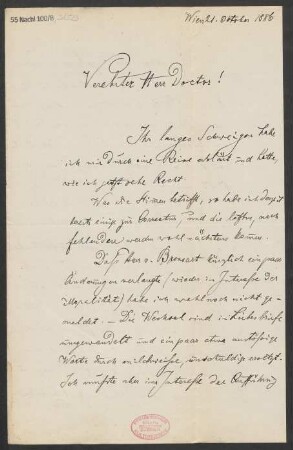 55 Nachl 100/B,
Wien 21. October 1886
Verehrter Herr Doctor!
Ihr langes Schweigen habe
ich mir durch eine Reise erklärt und hatte,
wie ich jetzt sehe Recht.
Was die betrifft, so habe ich
bereits einige zur Correctur, und die noch
fehlenden werden wohl nächstens kommen.
Daß Herr v. Bronsart kürzlich ein paar
Änderungen verlangte (wieder im Interesse der
Moralität) habe ich wohl noch nicht ge-
meldet. — Die Wechsel sind in Liebesbriefe
umgewandelt und ein paar etwas anstößige
Worte durch unschuldige ersetzt.
Ich mußte aber im Interesse der Aufführung